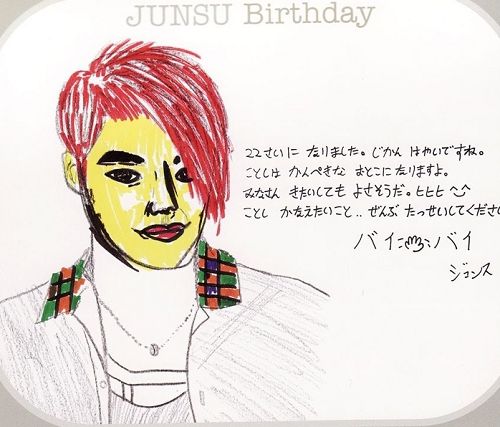 JUNSU Birthday
22さいに なりました。じかん はやいですね。
ことしは かんぺきな おとこに なりますよ。
みなさん きたいしても よさそうだ。ヒヒヒ ^^
ことし かなえたいこと.. ぜんぶ たっせいしてくださ
バイ バイ
ジュンス